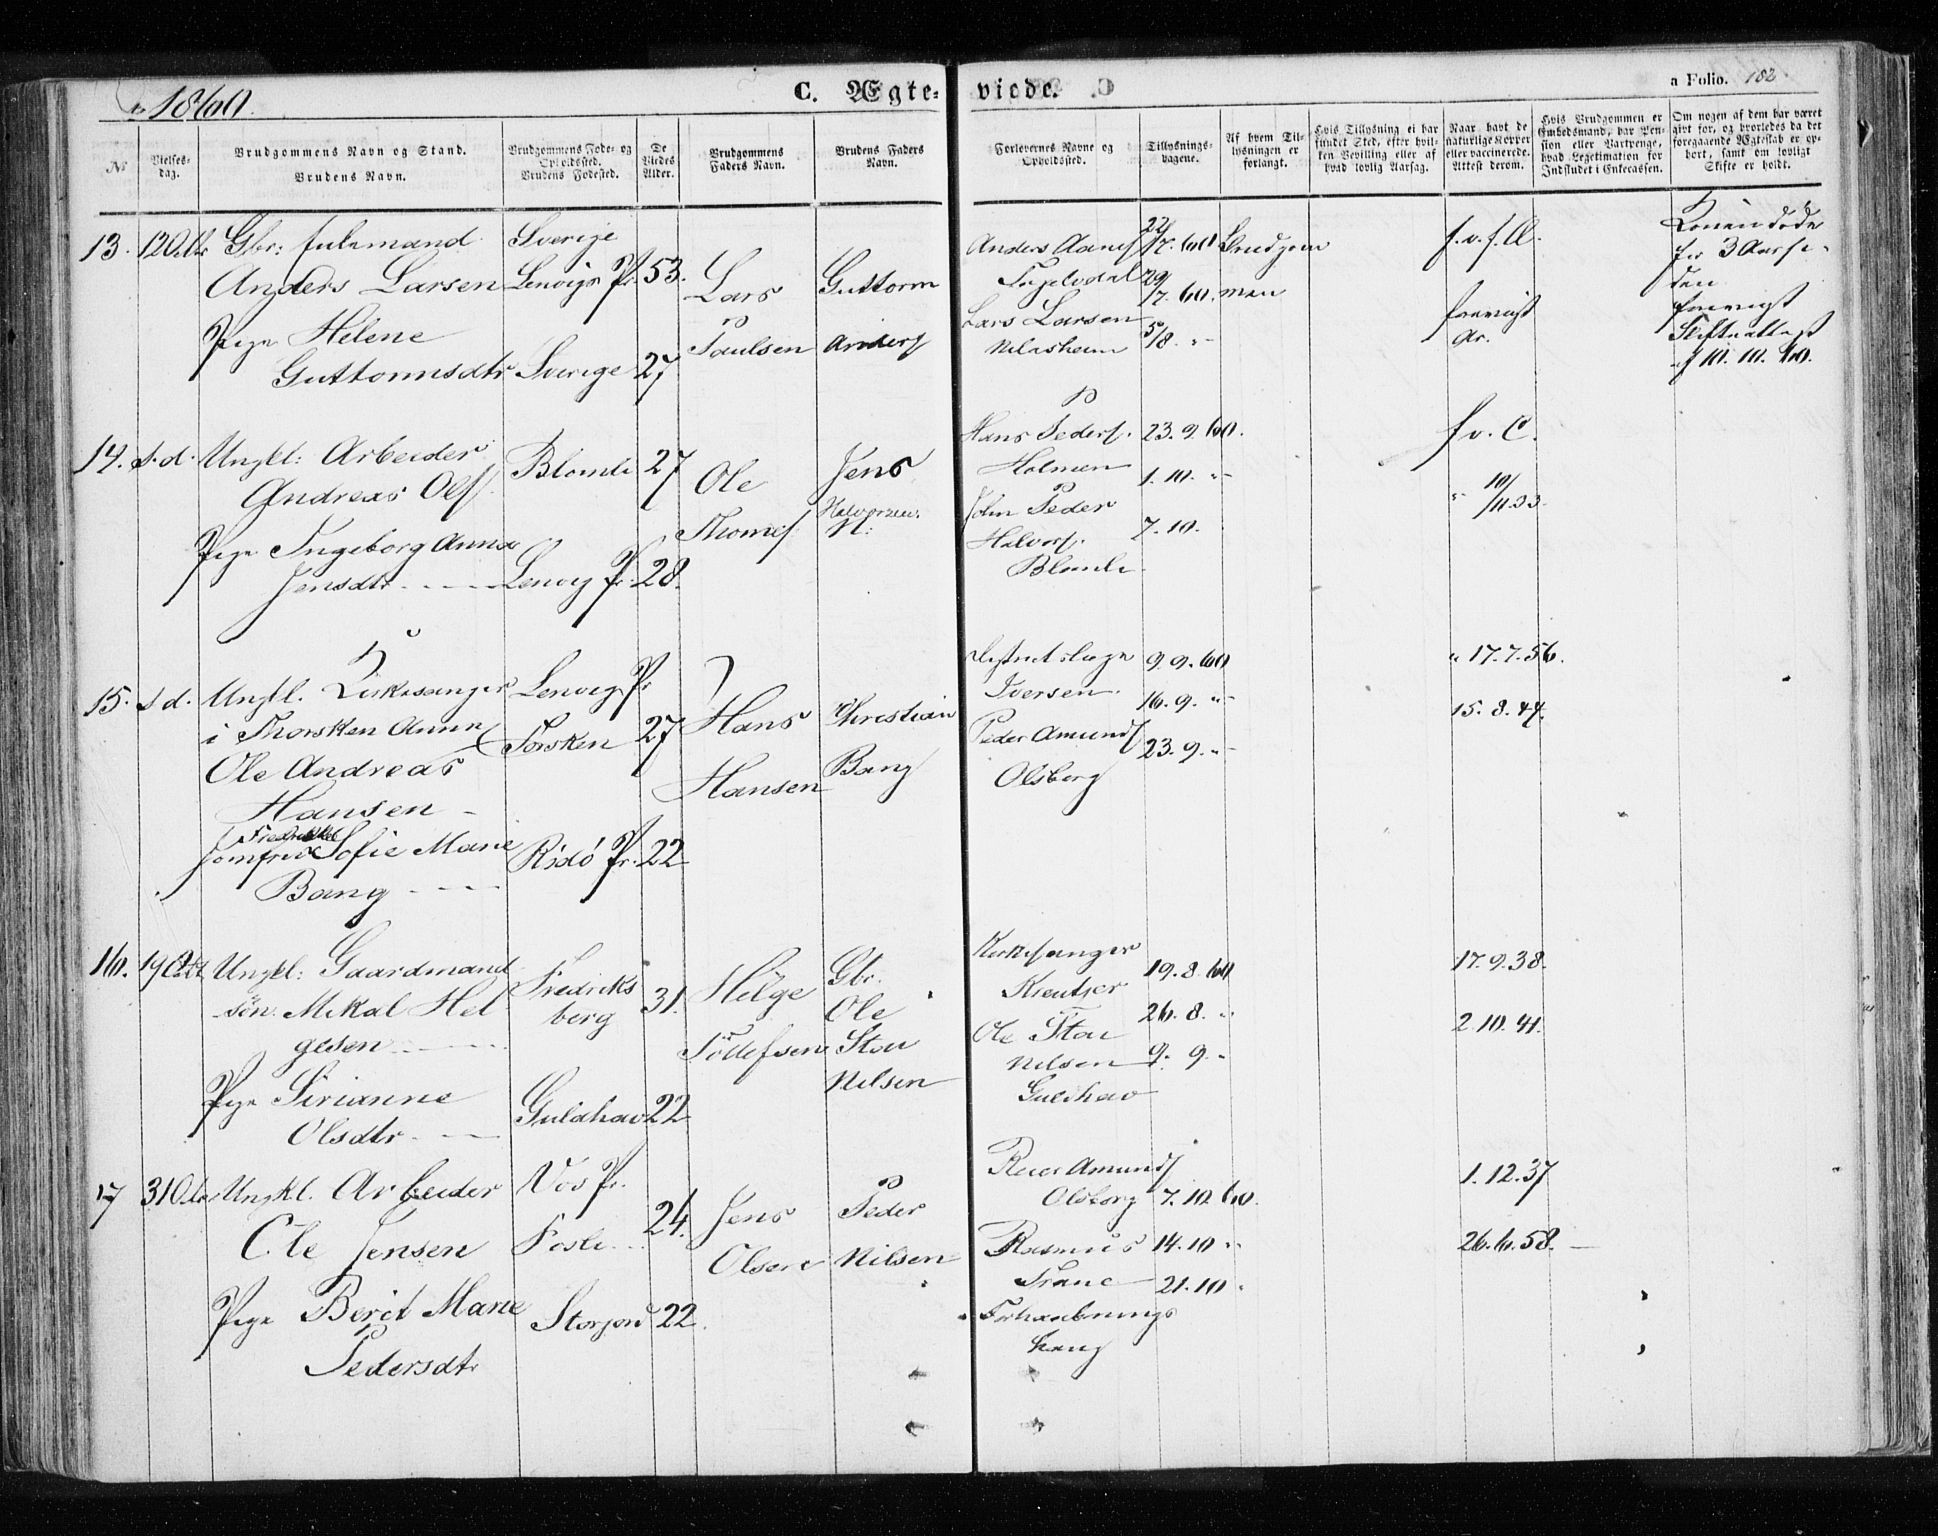 1860.
C. Ægte- viede.
a Folio. 182
No
Vielses-
dag.
Brudgommens Navn og Stand.
Brudens Navn.
Brudgommens Føde- og
Opholdssted.
Brudens Fødested.
De
Viedes
Alder.
Brudgommens
Faders Navn.
Brudens Faders
Navn.
Forlovernes Navne og
Opholdssted.
Tillysnings-
dagene.
Af hvem Til-
lysningen er
forlangt.
Hvis Tillysning ei har
fundet Sted, efter hvil-
ken Bevilling eller af
hvad lovlig Aarsag.
Naar havt de
naturlige Kopper
eller vaccinerede.
Attest derom.
Hvis Brudgommen er
Embedsmand, har Pen-
sion eller Vartpenge,
hvad Legetimation for
Indskudet i Enkecassen.
Om nogen af dem har været
gift før, og hvorledes da det
foregaaende Ægteskab er op-
hørt, samt om lovligt
Skifte er holdt.
13. 12 Okbr Gbr:
Anders Larsen
Pige Helene
Guttormsdtr
Sverige
Lenvigs Pr
Sverige
53.
27
Lars
Paulsen
Guttorm
Anders
Anders
Lars Larsen
22/7. 60
29/7. 60.
5/8. "
Brudgom
men
Konen døde
for 3 Aar si-
den
Skifteattest
af 10. 10. 60.
14. s. d. Ungkl: Arbeider
Andreas Ols.
Pige Ingeborg Anna
Jensdtr
Blomli
Lenvig Pr.
27
28.
Ole
Thomes
Jens
Halvorsen.
Hans Peders.
Holmen
John Peder
Halvors.
Blomli
23. 9. 60.
1. 10. "
7. 10.
f. v. C.
15. s. d. Ungkl. Kirkesanger
i Thorsken Annex
Ole Andreas
Hansen
Fredrikke
Jomfru Sofie Marie
Bang
Lenvig Pr
Torsken
Pr.
27
22
Hans
Hansen
Christian
Bang
Iversen
Peder Amunds
Olsborg
9. 9. 60
16. 9. "
23. 9. "
" 17. 7. 56.
15. 8. 44.
16. 19 Okt. Ungkl: Gaardmand
søn Mikal Hel-
gesen
Pige Sirianne
Olsdtr
Fredriks
berg
Guldhav
31.
22
Helge
Tollefsen
Gbr.
Ole
Stou
Nilsen
Kirkesanger
Kreutzer
Ole Stou
Nilsen
Guldhav
19. 8. 60
26. 8. "
9. 9. "
17. 9. 38.
2. 10. 41.
17 31 Okbr Ungkl. Arbeider
Ole Jensen
Pige Berit Marie
Pedersdtr
Vos Pr.
Fosli
Storjord
24.
22.
Jens
Olsen
Peder
Nilsen
Peder Amunds
Olsborg
Rasmus
Trane
Forhaabnings
haug
7. 10. 60.
14. 10 "
21. 10 "
1. 12. 37
26. 6. 58.